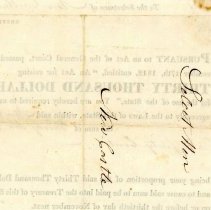 Select Men
New Castle
To the Selectmen of
PURSUANT to an Act of the General Court, passed
entitled, "An Act for raising
THIRTY THOUSAND DOLLA
of the State," You are hereby required to
to the Laws of this State, within said
being your proportion of said Thirty Thousand Dol
and to cause said sum to be paid into the Treasury of this S
or before the thirtieth day of November next